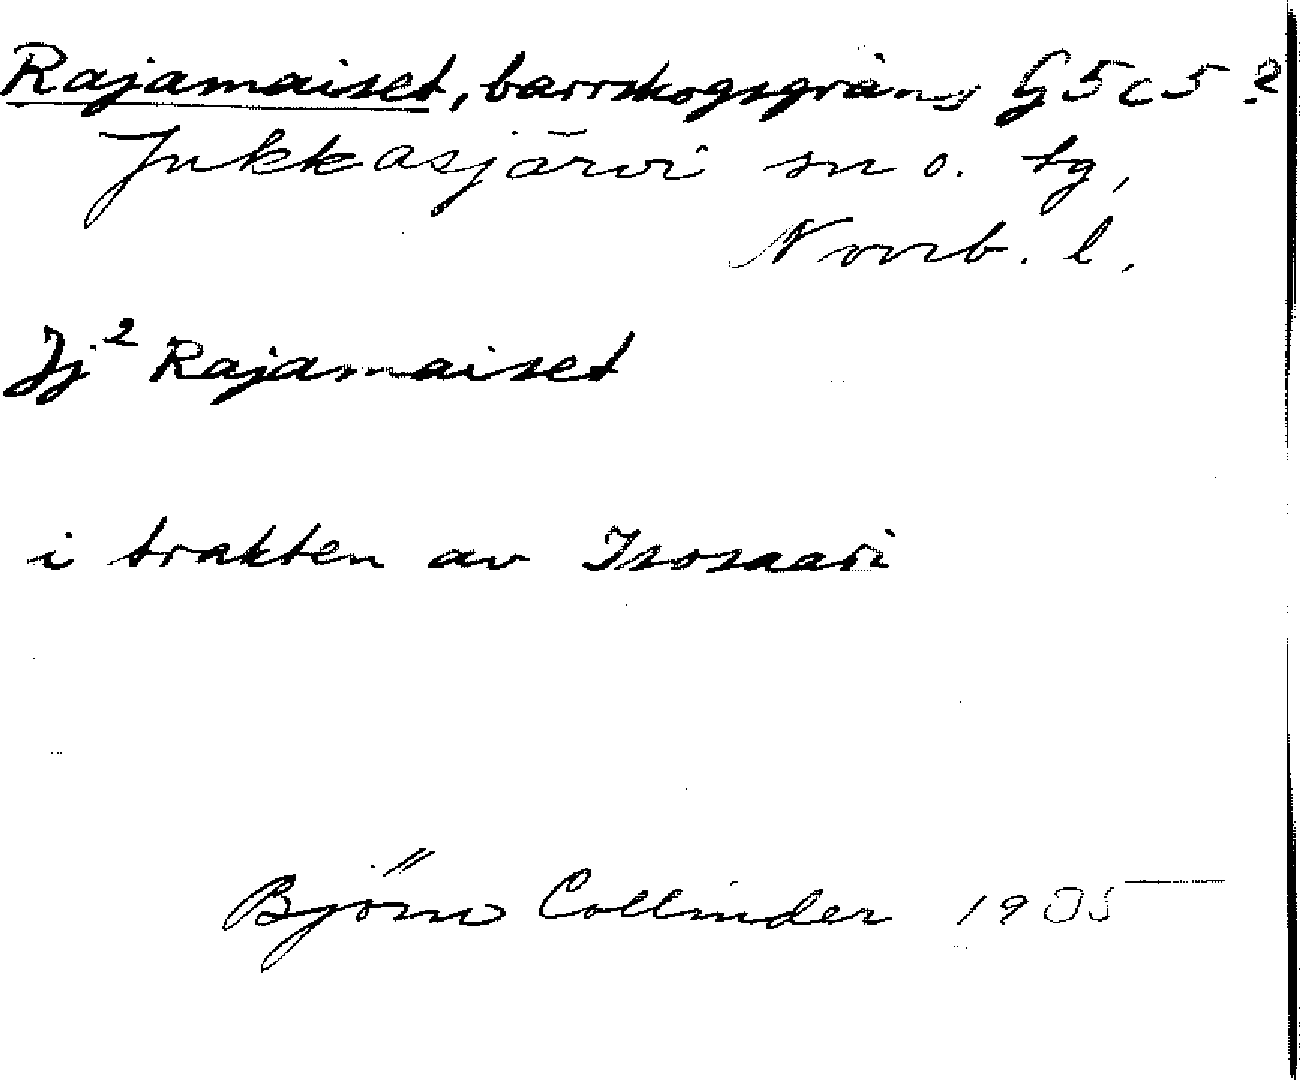 Rajamaiset, barrskogsgräns G5c5?
Jukkasjärvi sn o. tg,
Norrb. l.
Jj² Rajamaiset
i trakten av Isosaari
Björn Collinder 1935